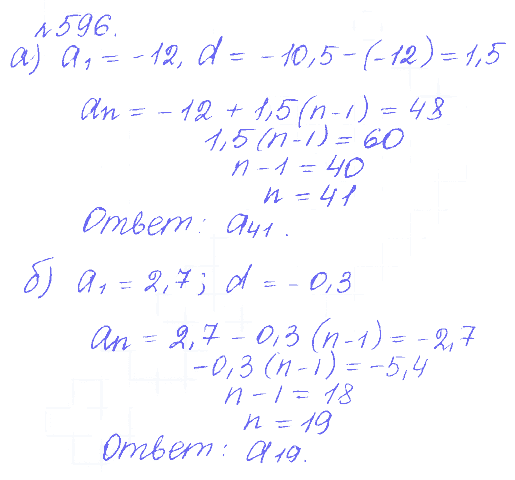 №596.
а) a₁ = -12, d = -10,5-(-12) = 1,5
an = -12 + 1,5(n-1) = 48
1,5(n-1) = 60
n-1 = 40
n = 41
Ответ: a₄₁.
б) a₁ = 2,7; d = -0,3
an = 2,7 - 0,3(n-1) = -2,7
-0,3(n-1) = -5,4
n-1 = 18
n = 19
Ответ: a₁₉.